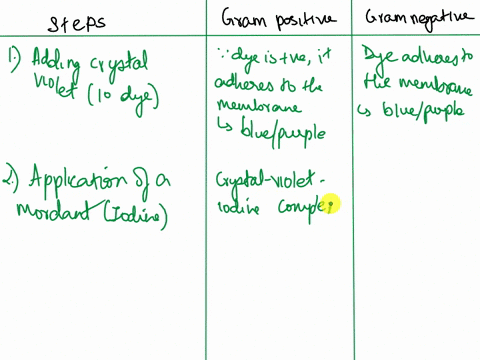 Steps
Gram positive
Gram negative
1.) Adding crystal
violet (1o dye)
∵ dye is +ve, it
adheres to the
membrane
↳ blue/purple
Dye adheres to
the membrane
↳ blue/purple
2.) Application of a
mordant (Iodine)
Crystal-violet-
iodine comple